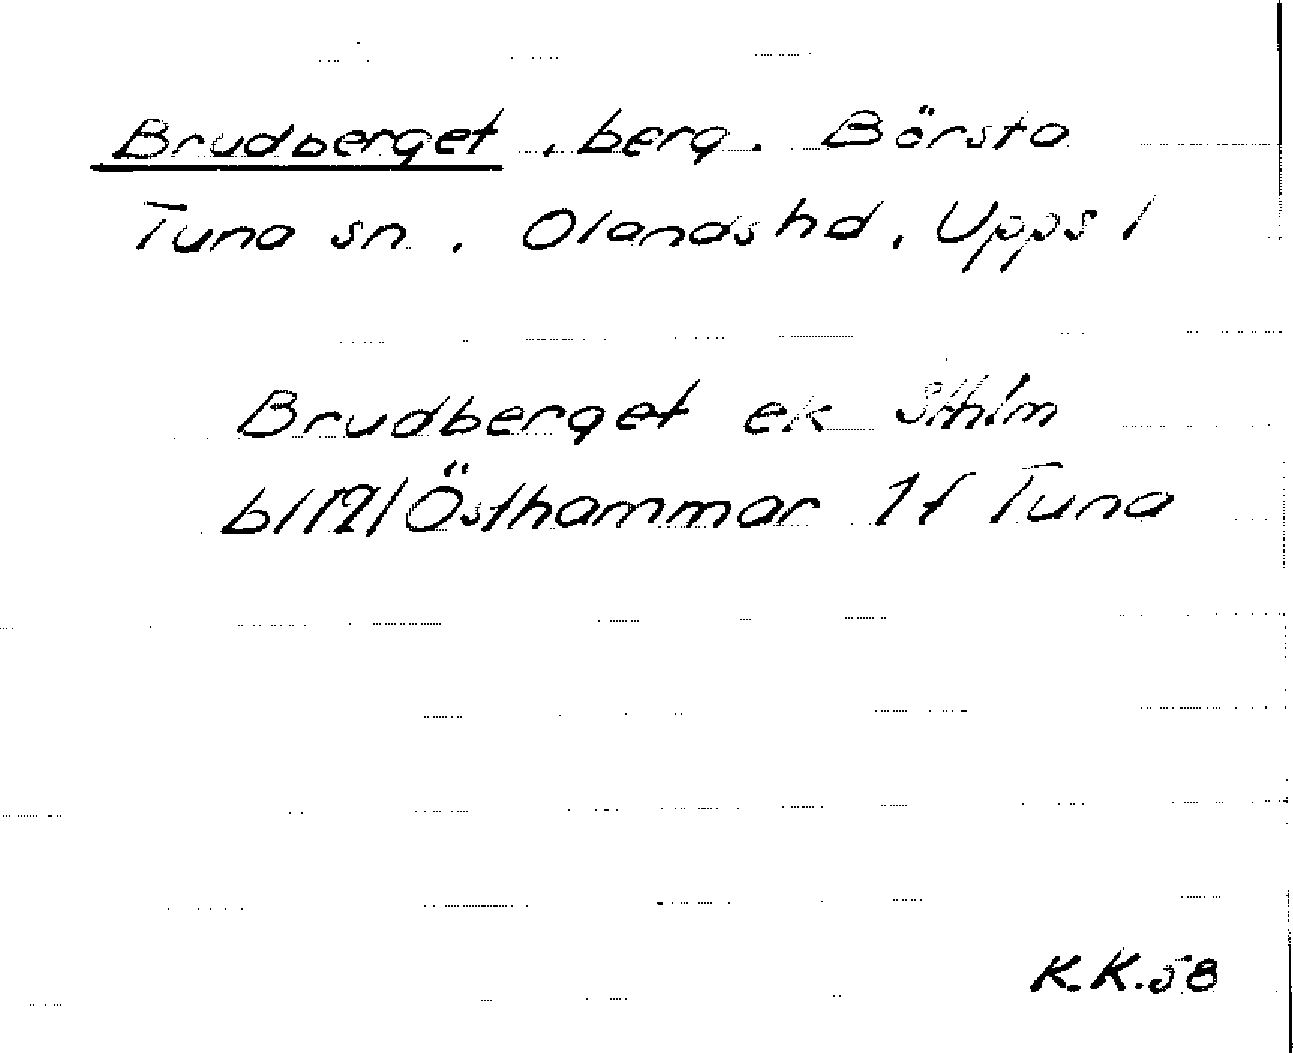 Brudberget, berg. Börsta
Tuna sn., Olands hd, Upps l
Brudberget ek Sthlm
bl 19/Östhammar 1f Tuna
K.K.58